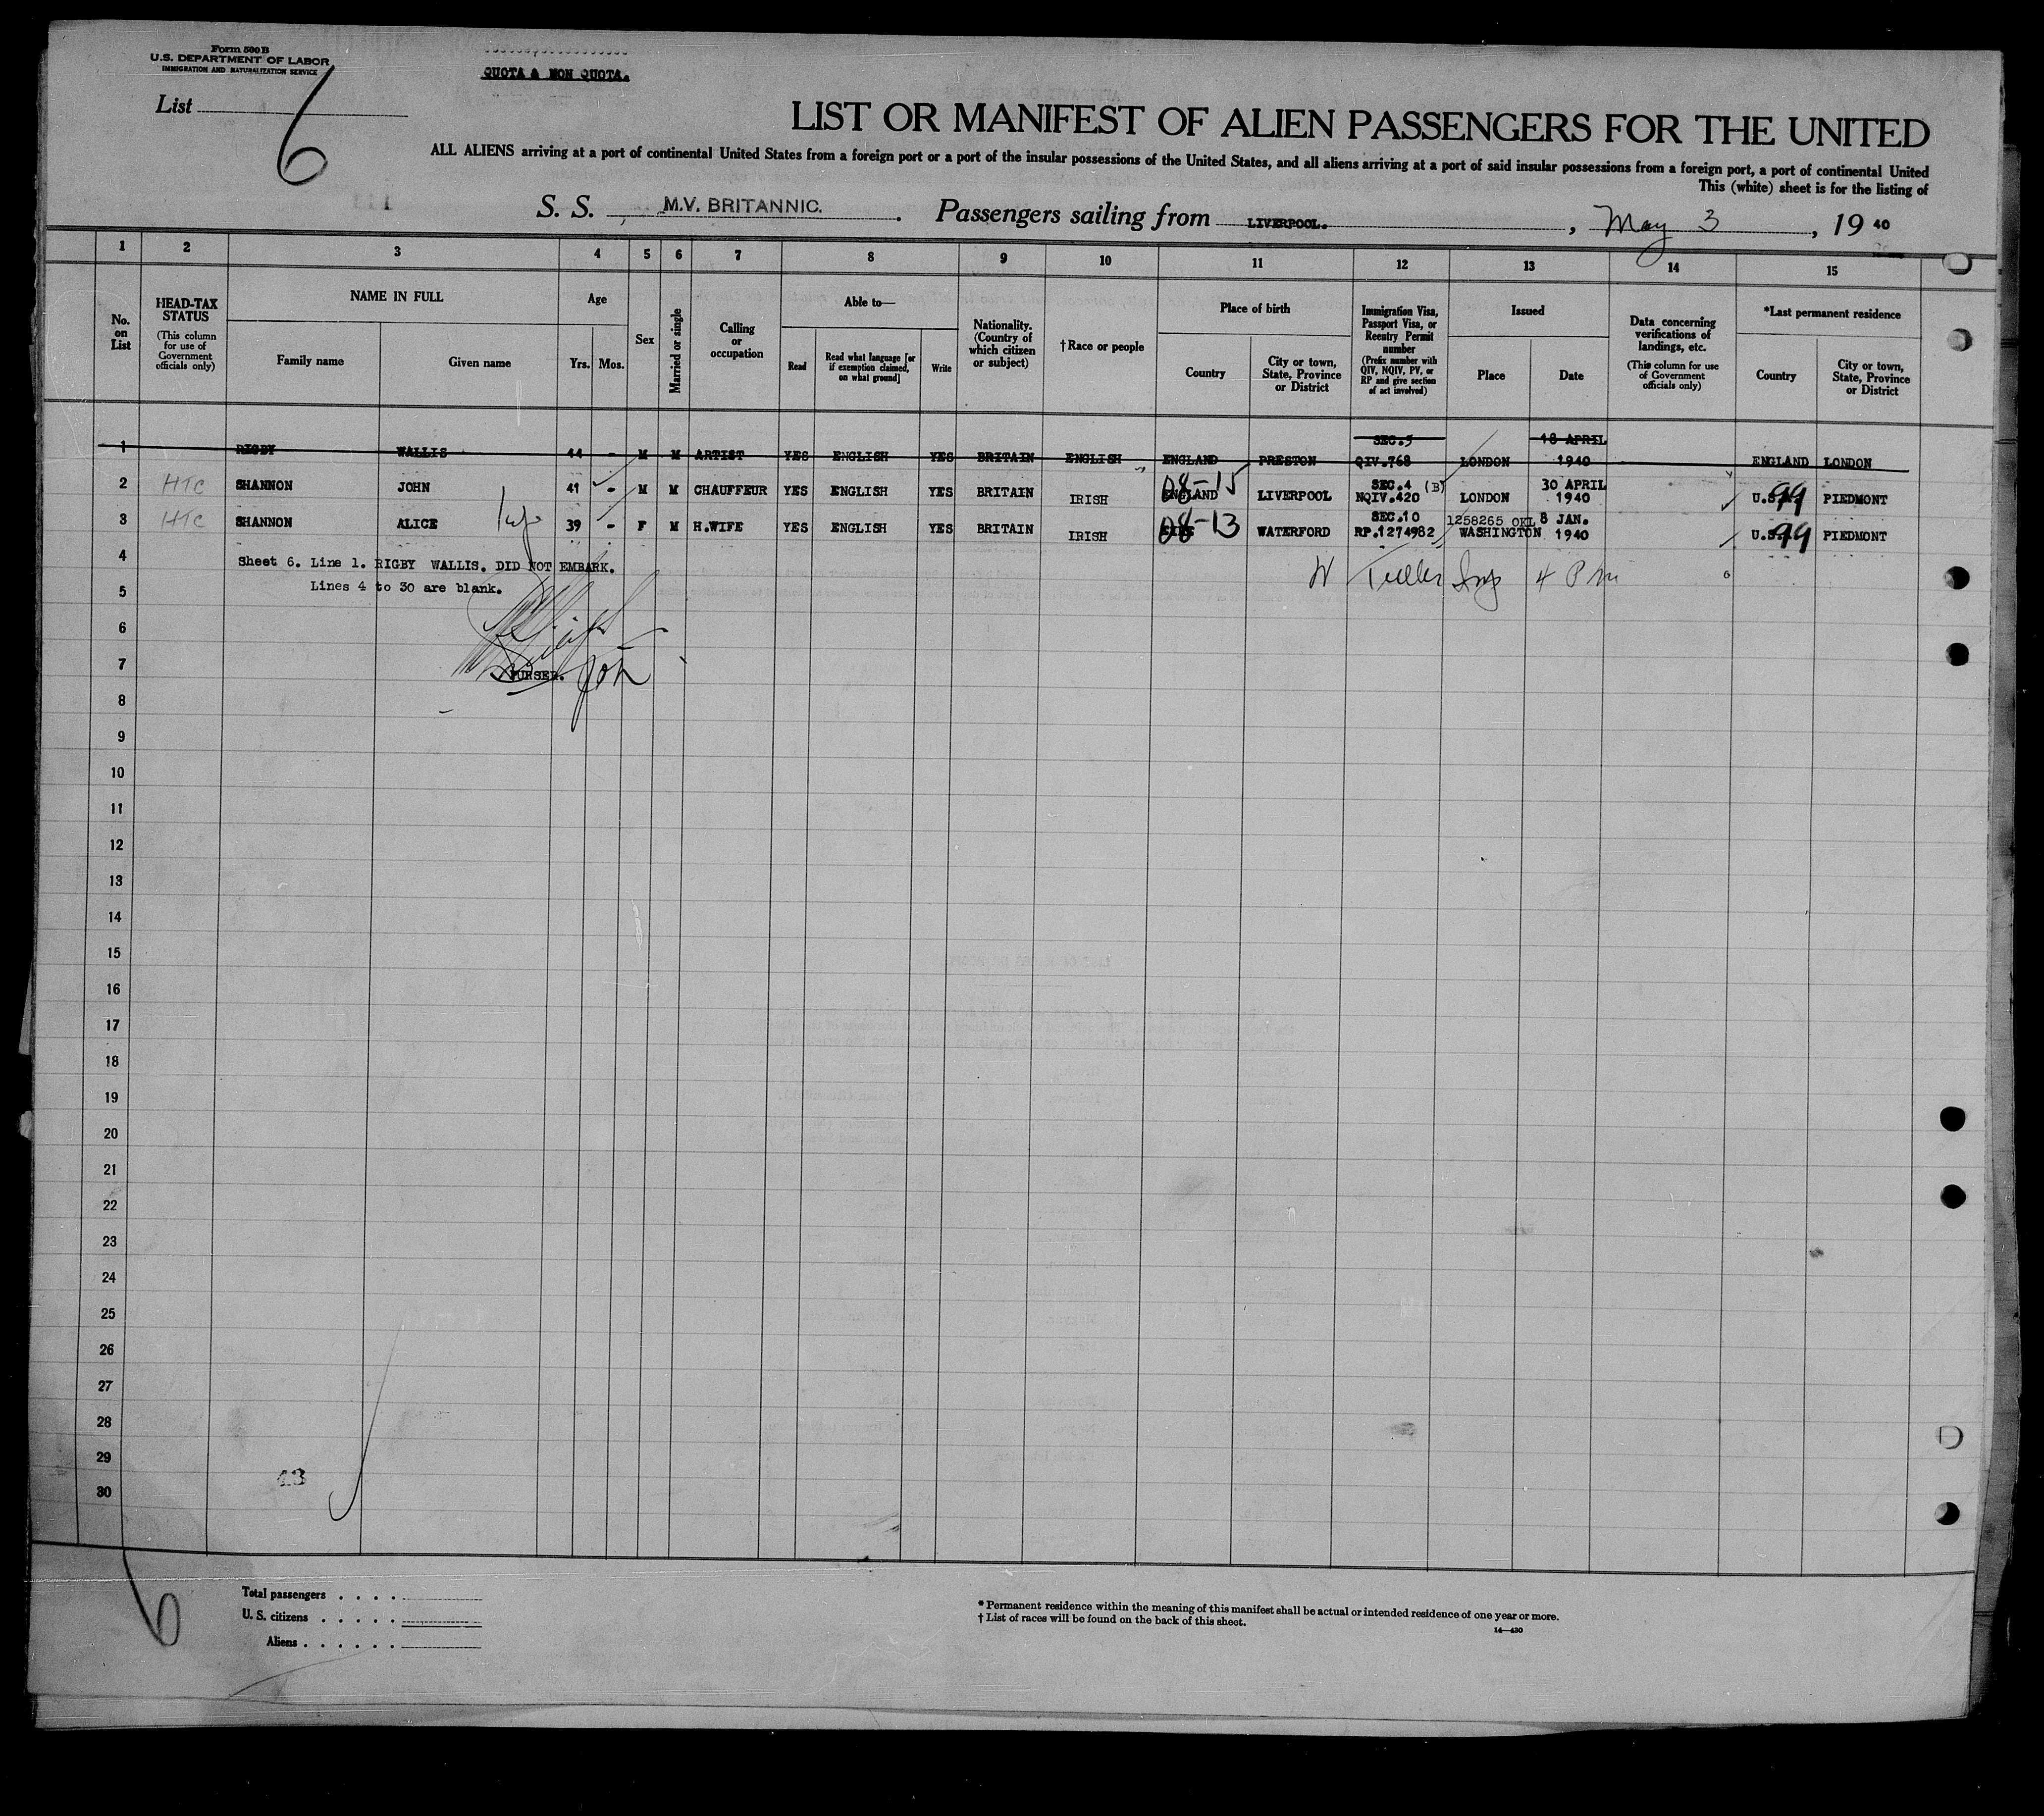 Form 500 B
U.S. DEPARTMENT OF LABOR
IMMIGRATION AND NATURALIZATION SERVICE
QUOTA & NON QUOTA.
List 6
LIST OR MANIFEST OF ALIEN PASSENGERS FOR THE UNITED
ALL ALIENS arriving at a port of continental United States from a foreign port or a port of the insular possessions of the United States, and all aliens arriving at a port of said insular possessions from a foreign port, a port of continental United
This (white) sheet is for the listing of
S. S. M.V. BRITANNIC. Passengers sailing from LIVERPOOL. , May 3 , 19 40
1 2 3 4 5 6 7 8 9 10 11 12 13 14 15
No. on List
HEAD-TAX STATUS
(This column for use of Government officials only)
NAME IN FULL
Family name
Given name
Age
Yrs. Mos.
Sex
Married or single
Calling or occupation
Able to—
Read
Read what language [or if exemption claimed, on what ground]
Write
Nationality. (Country of which citizen or subject)
†Race or people
Place of birth
Country
City or town, State, Province or District
Immigration Visa, Passport Visa, or Reentry Permit number
(Prefix number with QIV, NQIV, PV, or RP and give section of act involved)
Issued
Place
Date
Data concerning verifications of landings, etc.
(This column for use of Government officials only)
*Last permanent residence
Country
City or town, State, Province or District
SEC.5 18 APRIL
1 RIGBY WALLIS 44 - M M ARTIST YES ENGLISH YES BRITAIN ENGLISH ENGLAND PRESTON QIV.768 LONDON 1940 ENGLAND LONDON
08-15 SEC.4 (B) 30 APRIL
2 HTC SHANNON JOHN 41 - M M CHAUFFEUR YES ENGLISH YES BRITAIN IRISH ENGLAND LIVERPOOL NQIV.420 LONDON 1940 U.S.A. 99 PIEDMONT
08-13 SEC.10 1258265 OKL 8 JAN.
3 HTC SHANNON ALICE 39 - F M H.WIFE YES ENGLISH YES BRITAIN IRISH WATERFORD RP.1274982 WASHINGTON 1940 U.S.A. 99 PIEDMONT
4 Sheet 6. Line 1. RIGBY WALLIS. DID NOT EMBARK.
Insp 4 PM
5 Lines 4 to 30 are blank.
6
7 PURSER.
8
9
10
11
12
13
14
15
16
17
18
19
20
21
22
23
24
25
26
27
28
29
43
30
6
Total passengers . . . .
U. S. citizens . . . . .
Aliens . . . . . .
* Permanent residence within the meaning of this manifest shall be actual or intended residence of one year or more.
† List of races will be found on the back of this sheet.
14—430